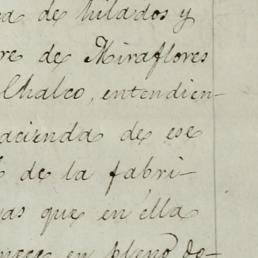 de hilados y
de Miraflores
Chalco, entendien-
hacienda de ese
de la fabri-
que en élla
en pleno do-